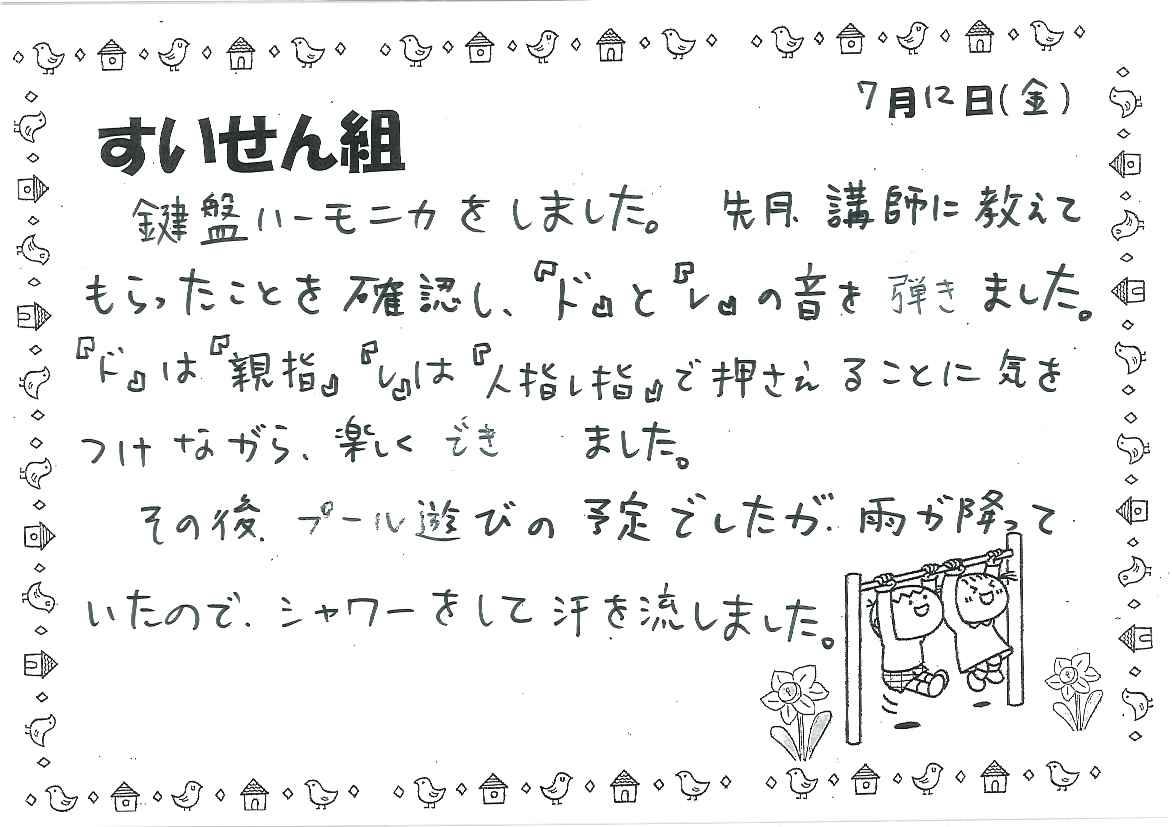 7月12日(金)
すいせん組
鍵盤ハーモニカをしました。 先月、講師に教えて
もらったことを確認し、『ド』と『レ』の音を弾きました。
『ド』は『親指』『レ』は『人指し指』で押さえることに気を
つけながら、楽しくできました。
その後、プール遊びの予定でしたが、雨が降って
いたので、シャワーをして汗を流しました。